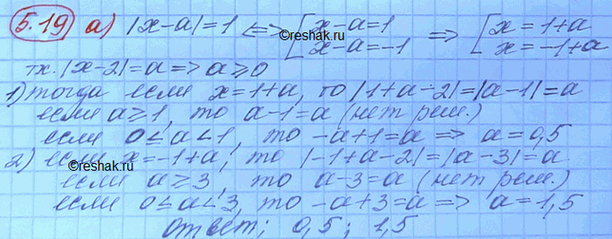 5.19 а) |x-a|=1 <=> [x-a=1 x-a=-1 => [x=1+a x=-1+a
т.к. |x-2|=a => a≥0
1) тогда если x=1+a, то |1+a-2|=|a-1|=a
если a≥1, то a-1=a (нет реш.)
если 0≤a<1, то -a+1=a => a=0,5
2) если x=-1+a, то |-1+a-2|=|a-3|=a
если a≥3, то a-3=a (нет реш.)
если 0≤a<3, то -a+3=a => a=1,5
ответ: 0,5; 1,5